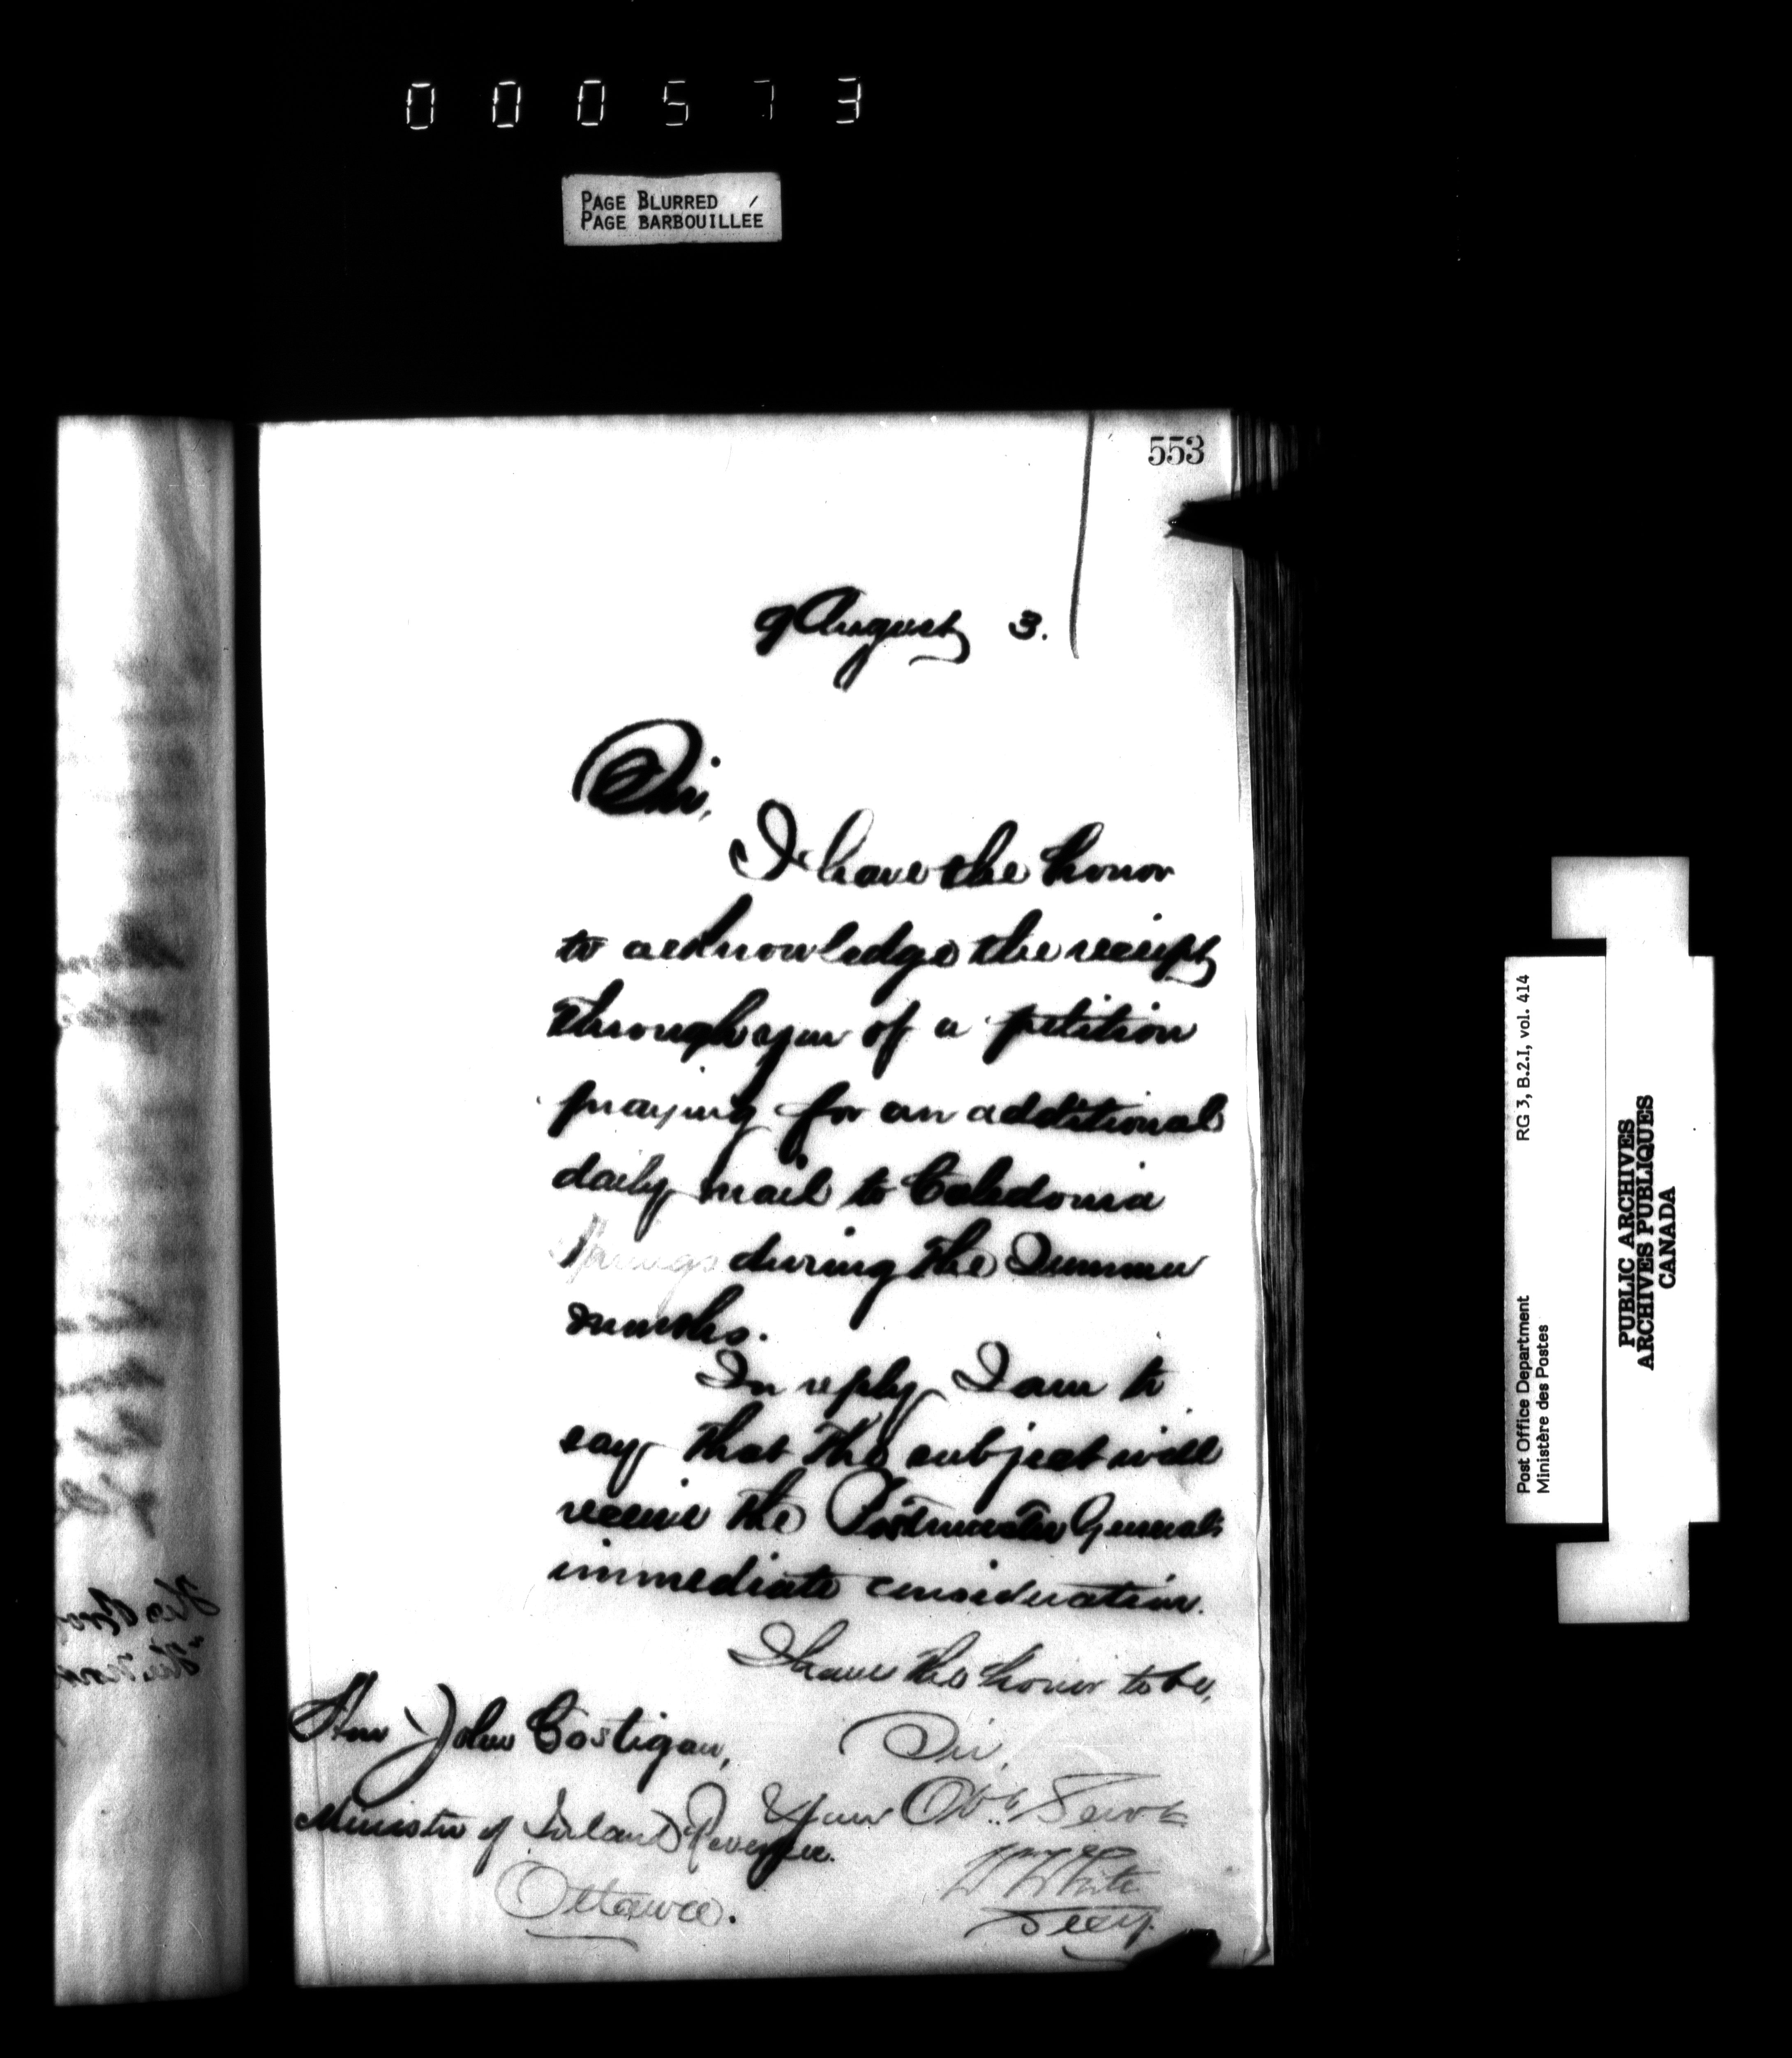 000573
PAGE BLURRED
PAGE BARBOUILLÉE
553
9 August 3.
Sir,
I have the honor
to acknowledge the receipt
through you of a petition
praying for an additional
daily mail to Caledonia
Springs during the Summer
months.
In reply I am to
say that the subject will
receive the Postmaster General's
immediate consideration.
I have the honor to be,
Sir,
Your Obt. Servt
W White
Secy.
Hon John Costigan,
Minister of Inland Revenue.
Ottawa.
Post Office Department RG 3, B.2.I, vol. 414
Ministère des Postes
PUBLIC ARCHIVES
ARCHIVES PUBLIQUES
CANADA